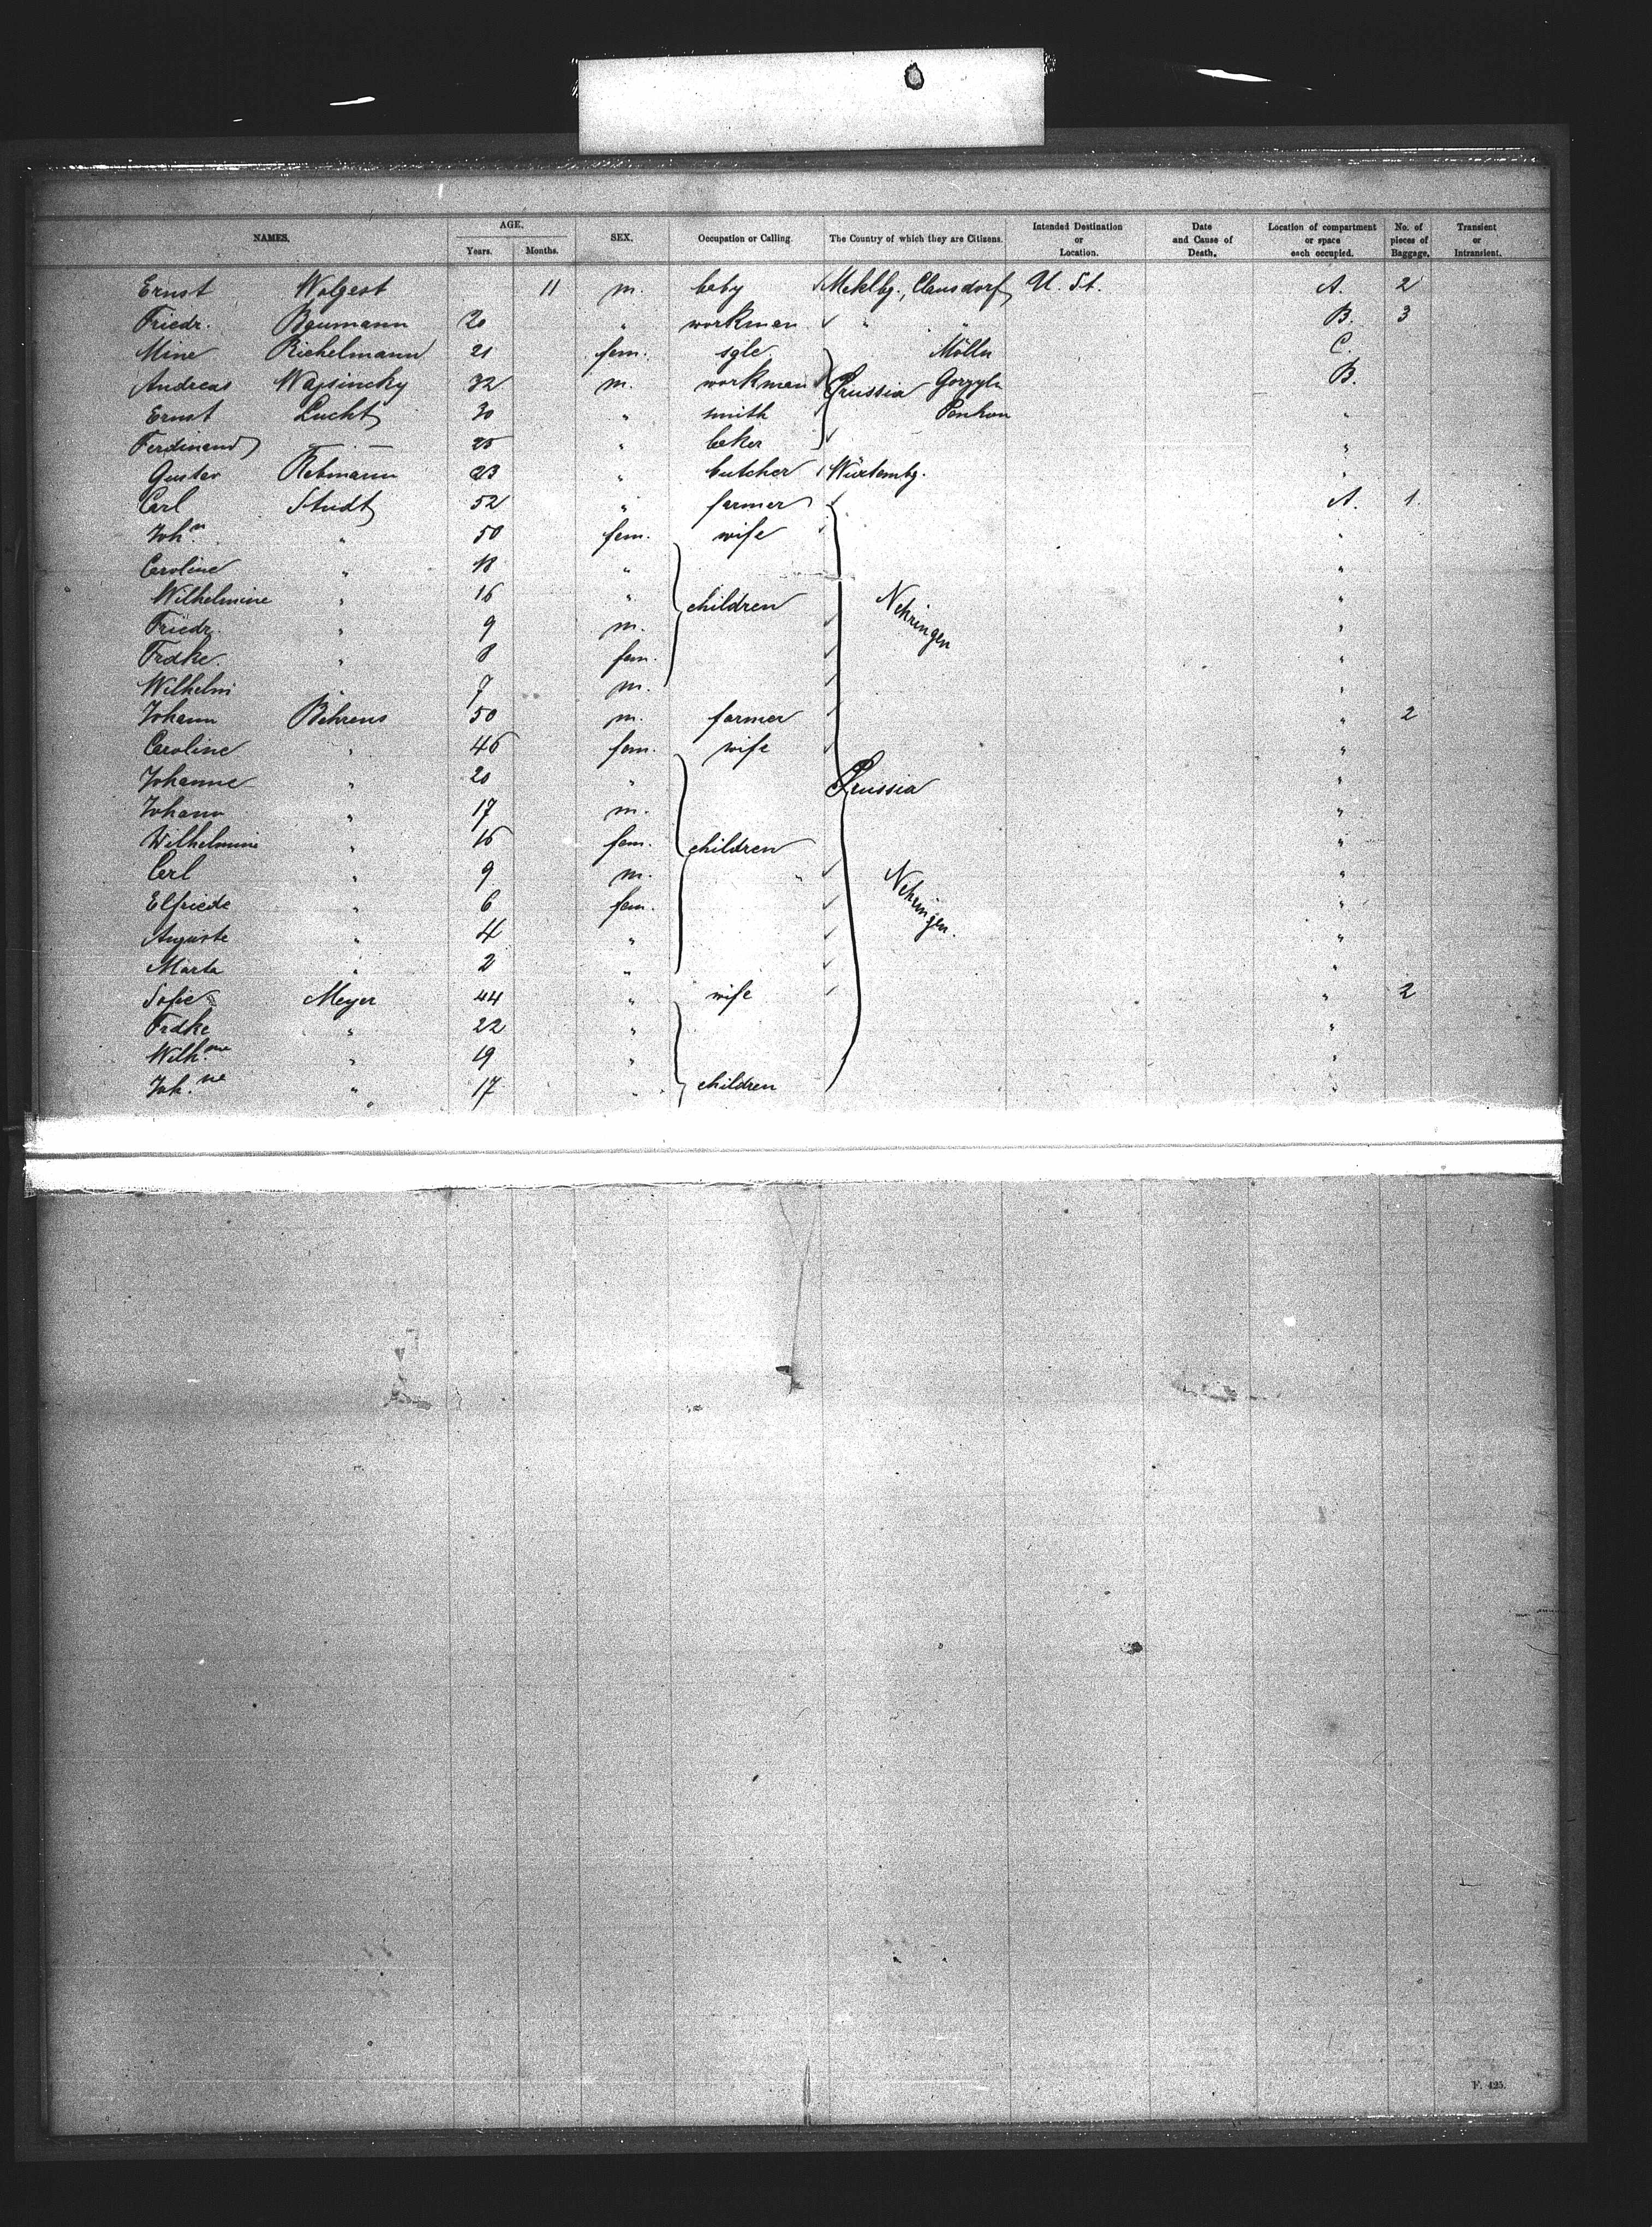 NAMES. AGE. Years. Months. SEX. Occupation or Calling. The Country of which they are Citizens. Intended Destination or Location. Date and Cause of Death. Location of compartment or space each occupied. No. of pieces of Baggage. Transient or Intransient.
Ernst Wolgast 11 m. baby Meklbg., Clausdorf U. St. A. 2
Friedr. Baumann 20 " workman " " B. 3
Mine Richelmann 21 fem. sgle. Mölln C.
Andreas 32 m. workman Prussia B.
Ernst Lucht 30 " smith "
Ferdinand — 25 " baker "
Gustav Rebmann 23 " butcher Würtembg. "
Carl Studt 52 " farmer A. 1.
Joh. " 50 fem. wife "
Caroline " 18 " "
Wilhelmine " 16 " children Nehringen "
Friedr. " 9 m. "
Frdke. " 8 fem. "
Wilhelm " 7 m. "
Johann Behrens 50 m. farmer " 2
Caroline " 46 fem. wife "
Johanne " 20 " Prussia "
Johann " 17 m. "
Wilhelmine " 16 fem. children "
Carl " 9 m. " "
Elfriede " 6 fem. Nehringen. "
Auguste " 4 " "
Marta " 2 " "
Sofie Meyer 44 " wife " 2
Frdke " 22 " "
Wilh.me " 19 " "
Joh.ne " 17 " children "
F. 425.